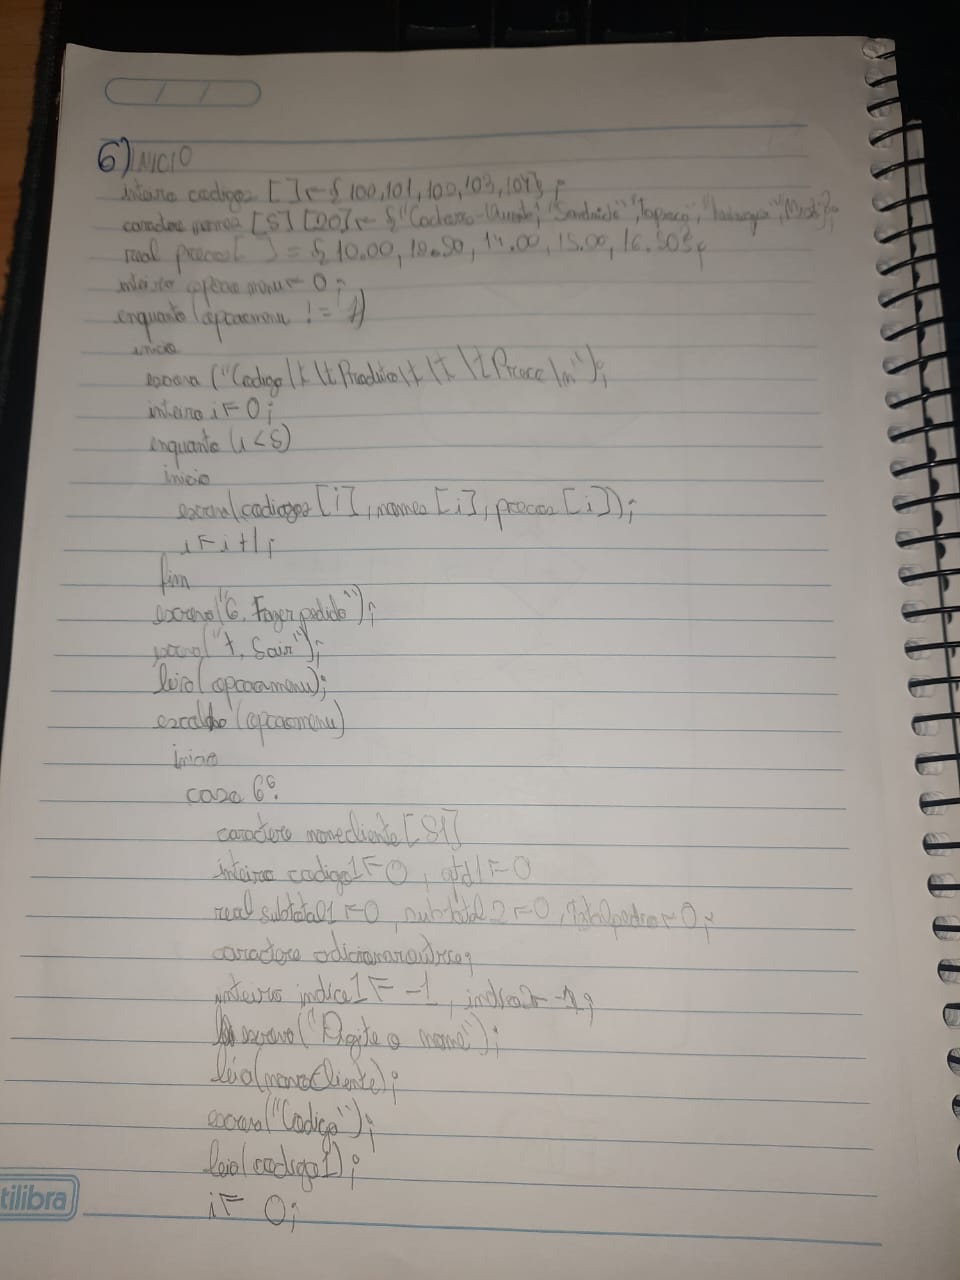 6) INICIO
inteiro codigos [ ] ← { 100, 101, 100, 103, 104} ;
caractere nomes [5] [20] ← { "Cachorro-Quente", "Sanduiche", "Tapioca",
real precos [ ] = { 10.00, 18.50, 14.00, 15.00, 16.50};
inteiro opcao menu ← 0 ;
enquanto (opcaomenu != 7)
inicio
escreva ("Codigo\t \t Produto\t \t \t Preco \n");
inteiro i ← 0 ;
enquanto (i < 5)
inicio
escreva(codigos [i], nomes [i], precos [i]);
i ← i+1 ;
fim
escreva("6. Fazer pedido");
escreva("7. Sair");
leia( opcaomenu);
escolha (opcaomenu)
inicio
caso 6:
caractere nomecliente [51]
inteiro codigo1 ← 0, qtd1 ← 0
real subtotal1 ← 0, subtotal2 ← 0, ← 0;
caractere
inteiro indice1 ← -1, indice2 ← -1;
escreva("Digite o nome");
leia(nomeCliente);
escreva("Codigo");
leia(codigo1);
i ← 0;
tilibra